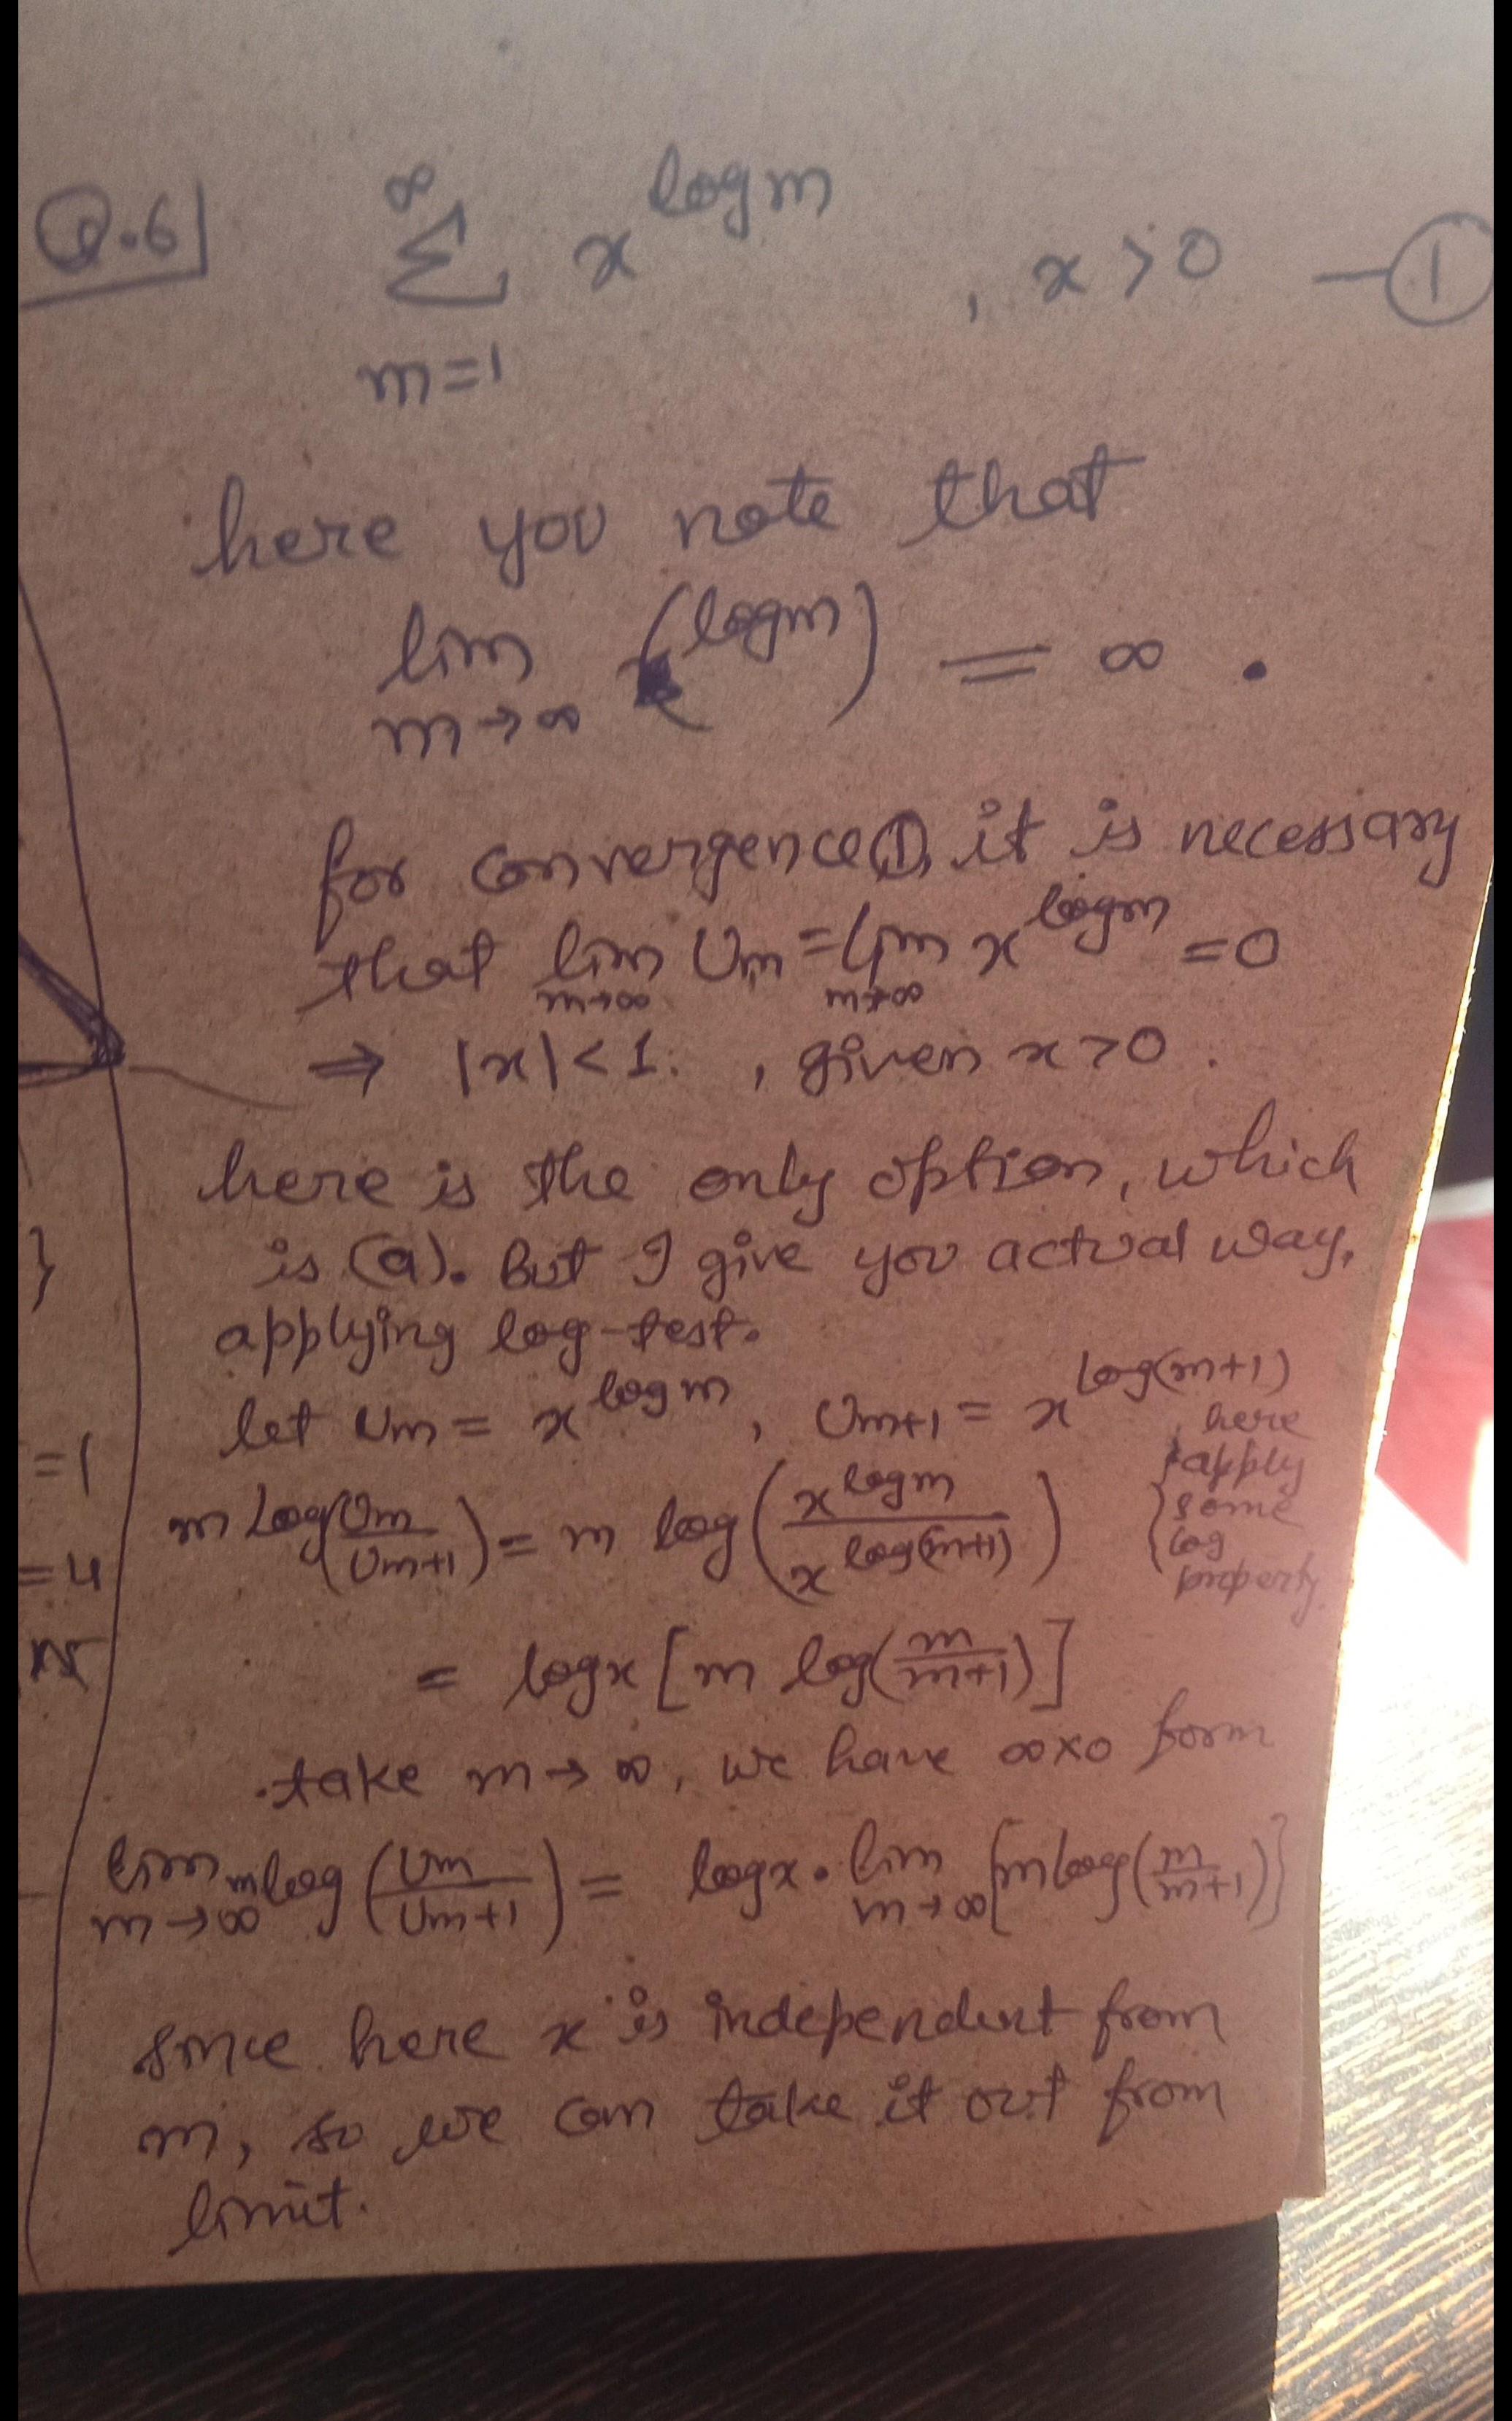 Q.6] ∞
∑ x^{log m} , x > 0 —①
m=1
here you note that
lim (log m) = ∞ .
m→∞
for convergence ①, it is necessary
that lim Um = lim x^{log m} = 0
m→∞ m→∞
⇒ |x| < 1. , given x > 0 .
here is the only option, which
is (a). But I give you actual way,
applying log-test.
let Um = x^{log m} , Um+1 = x^{log(m+1)}
m log(Um/Um+1) = m log(x^{log m}/x^{log(m+1)}) { here apply some log property.
= log x [m log(m/m+1)]
.take m→∞, we have ∞×0 form
lim m log (Um/Um+1) = log x · lim {m log(m/m+1)}
m→∞ m→∞
since here x is independent from
m, so we can take it out from
limit.
}
=1
=4